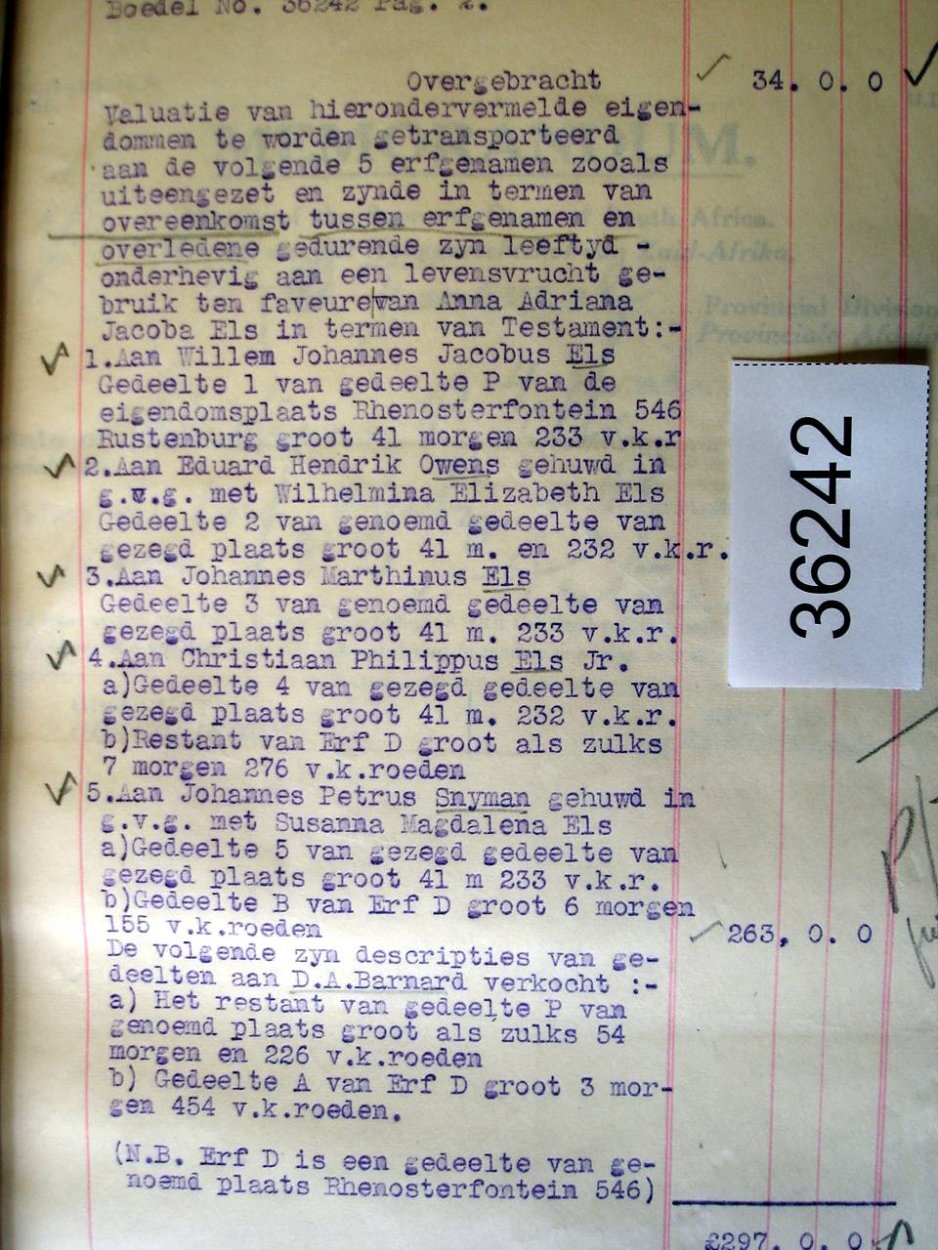 Boedel No. 36242 Pag. 2.
Overgebracht 34. 0. 0
Valuatie van hierondervermelde eigen-
dommen te worden getransporteerd
aan de volgende 5 erfgenamen zooals
uiteengezet en zynde in termen van
overeenkomst tussen erfgenamen en
overledene gedurende zyn leeftyd -
onderhevig aan een levensvrucht ge-
bruik ten faveure van Anna Adriana
Jacoba Els in termen van Testament:-
1.Aan Willem Johannes Jacobus Els
Gedeelte 1 van gedeelte P van de
eigendomsplaats Rhenosterfontein 546
Rustenburg groot 41 morgen 233 v.k.r
2.Aan Eduard Hendrik Owens gehuwd in
g.v.g. met Wilhelmina Elizabeth Els
Gedeelte 2 van genoemd gedeelte van
gezegd plaats groot 41 m. en 232 v.k.r.
3.Aan Johannes Marthinus Els
Gedeelte 3 van genoemd gedeelte van
gezegd plaats groot 41 m. 233 v.k.r.
4.Aan Christiaan Philippus Els Jr.
a)Gedeelte 4 van gezegd gedeelte van
gezegd plaats groot 41 m. 232 v.k.r.
b)Restant van Erf D groot als zulks
7 morgen 276 v.k.roeden
5.Aan Johannes Petrus Snyman gehuwd in
g.v.g. met Susanna Magdalena Els
a)Gedeelte 5 van gezegd gedeelte van
gezegd plaats groot 41 m 233 v.k.r.
b)Gedeelte B van Erf D groot 6 morgen
155 v.k.roeden 263, 0. 0
De volgende zyn descripties van ge-
deelten aan D.A.Barnard verkocht :-
a) Het restant van gedeelte P van
genoemd plaats groot als zulks 54
morgen en 226 v.k.roeden
b) Gedeelte A van Erf D groot 3 mor-
gen 454 v.k.roeden.
(N.B. Erf D is een gedeelte van ge-
noemd plaats Rhenosterfontein 546)
£297. 0. 0
36242